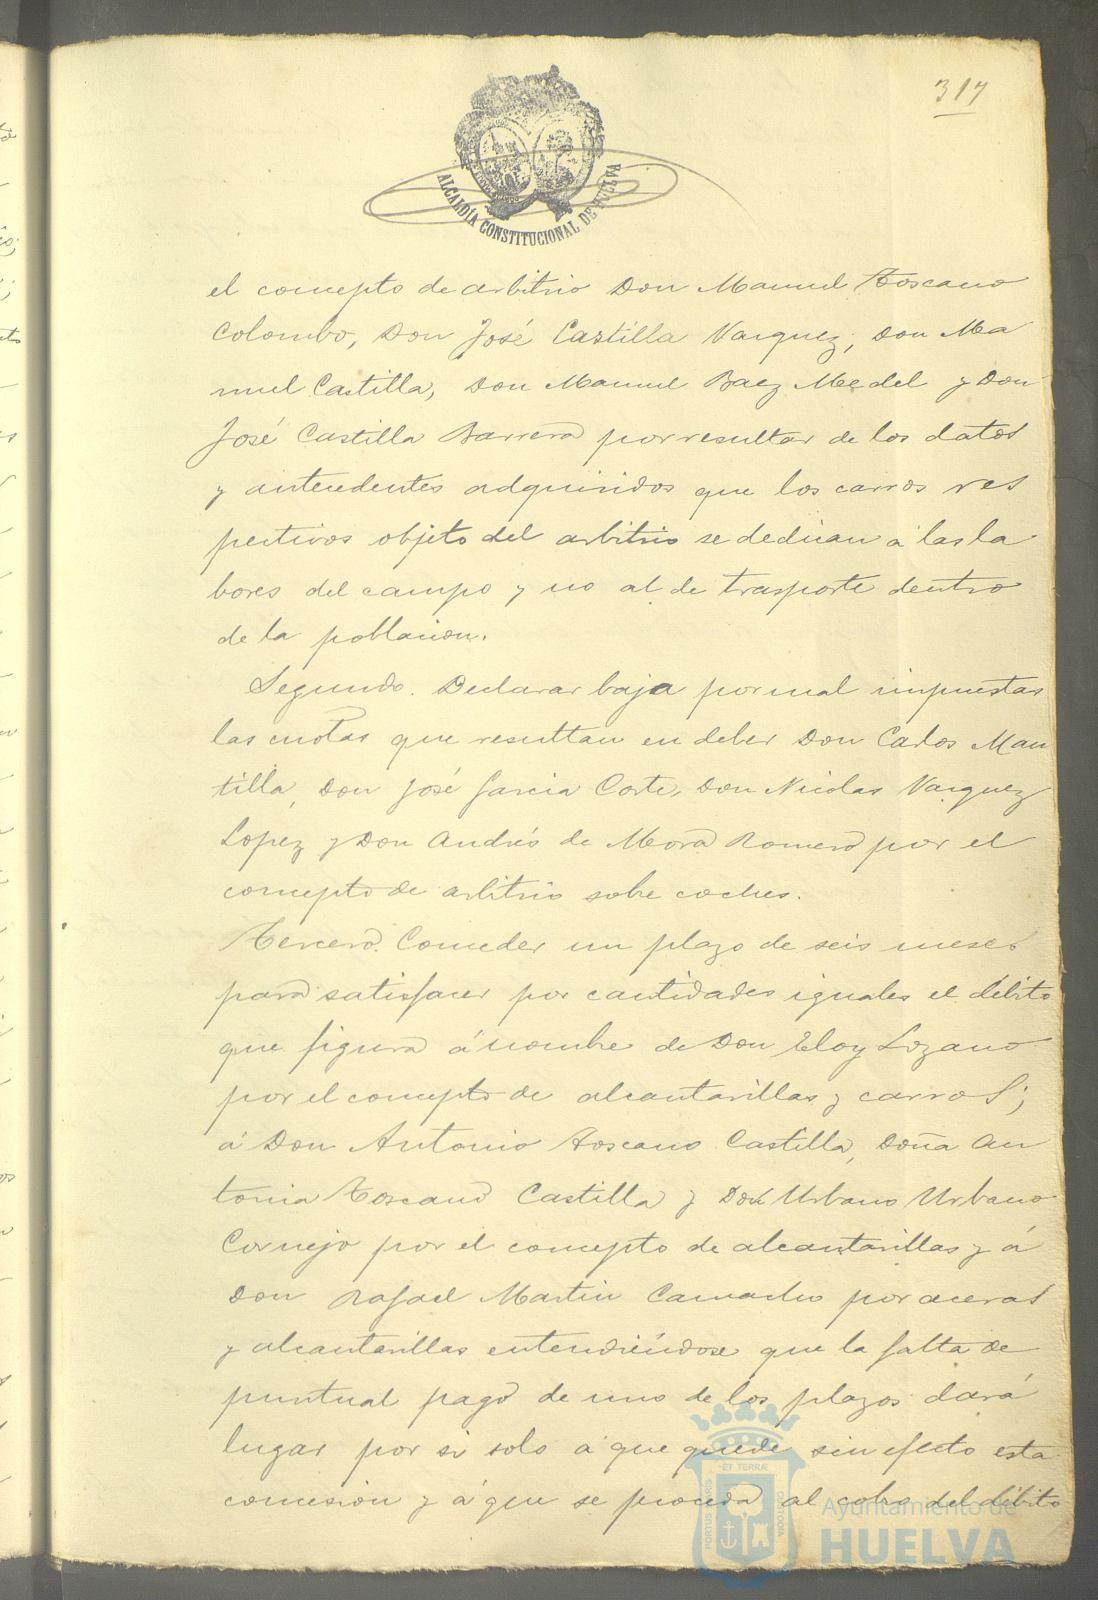 317
ALCALDÍA CONSTITUCIONAL DE HUELVA
el concepto de arbitrio Don Manuel Toscano
Colombo, Don José Castilla Vazquez, Don Ma
nuel Castilla, Don Manuel Baez Medel y Don
José Castilla Barrera por resultar de los datos
y antecedentes adquiridos que los carros res
pectivos objeto del arbitrio se dedican a las la
bores del campo y no al de trasporte dentro
de la poblacion.
Segundo. Declarar baja por mal impuestas
las cuotas que resultan en deber Don Carlos Man
tilla, Don José Garcia Corte, Don Nicolas Vazquez
Lopez y Don Andrés de Mora Romero por el
concepto de arbitrio sobre coches.
Tercero. Conceder un plazo de seis meses
para satisfacer por cantidades iguales el débito
que figura á nombre de Don Eloy Lozano
por el concepto de alcantarillas y carros;
á Don Antonio Toscano Castilla, Doña An
tonia Toscano Castilla y Don Urbano Urbano
Cornejo por el concepto de alcantarillas y á
Don Rafael Martin Camacho por aceras
y alcantarillas entendiéndose que la falta de
puntual pago de uno de los plazos dará
lugar por si solo á que quede sin efecto esta
concesion y á que se proceda al cobro del débito
PORTUS MARIS ET TERRÆ CUSTODIA
Ayuntamiento de
HUELVA